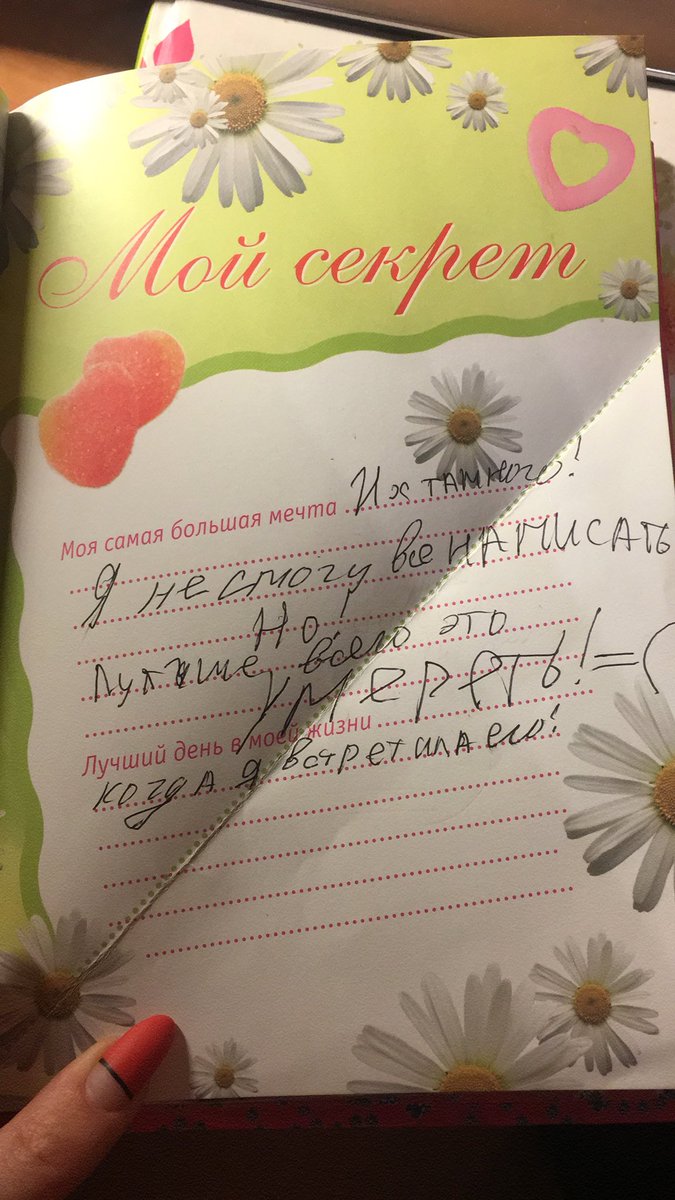 Мой секрет
Моя самая большая мечта Их так много!
Я не смогу все написать
Но!
Лутьше всего это
умереть! =(
Лучший день в моей жизни
когда я встретила его!